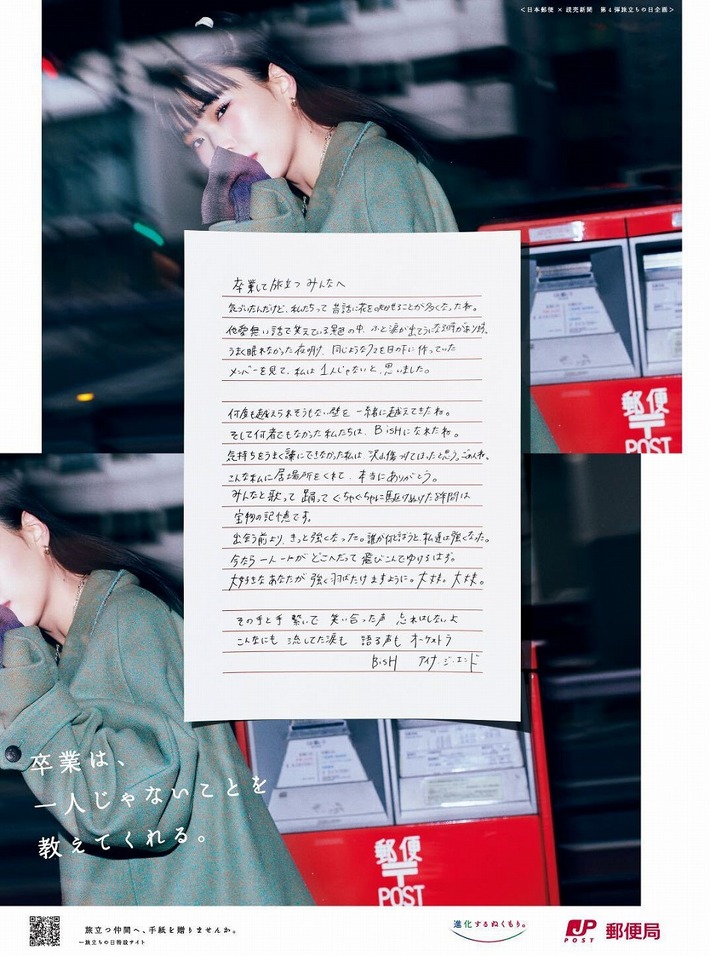 <日本郵便 × 読売新聞　第4弾旅立ちの日企画>
卒業して旅立つ みんなへ
気づいたんだけど、私たちって 昔話に花を咲かせることが多くなったね。
他愛無い話で笑えている景色の中、ふと涙が出そうになる時があります。
うまく眠れなかった夜明け、同じようなクマを目の下に作っていた
メンバーを見て、私は1人じゃないと、思いました。
何度も越えられそうもない壁を 一緒に越えてきたね。
そして何者でもなかった私たちは、BiSHになれたね。
気持ちをうまく言葉にできなかった私は、沢山傷つけてしまったと思う。ごめんね。
こんな私に居場所をくれて、本当にありがとう。
みんなと歌って 踊って ぐちゃぐちゃに駆け抜けた8年間は
宝物の記憶です。
出会う前より、きっと強くなった。誰が何と言おうと、私達は強くなった。
今なら一人一人が どこへだって 飛びこんでゆけるはず。
大好きなあなたが 強く羽ばたけますように。大丈夫。大丈夫。
その手と手 繋いで 笑い合った声 忘れはしないよ
こんなにも 流してた涙も 語る声も オーケストラ
BiSH アイナ・ジ・エンド
郵便
〒
POST
卒業は、
一人じゃないことを
教えてくれる。
郵便
〒
POST
旅立つ仲間へ、手紙を贈りませんか。
旅立ちの日特設サイト
進化するぬくもり。
JP
POST
郵便局